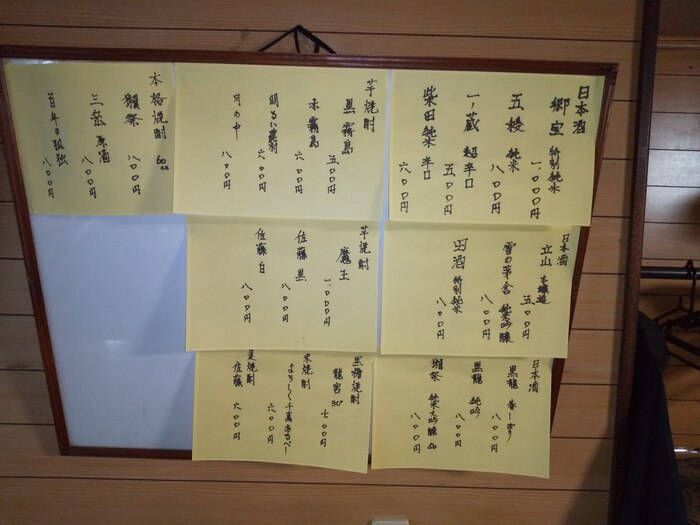 日本酒
郷宝 特別純米
一、〇〇〇円
五稜 純米
八〇〇円
一ノ蔵 超辛口
五〇〇円
柴田 純米 辛口
六〇〇円
芋焼酎
黒霧島
五〇〇円
赤霧島
六〇〇円
明るい農村
六〇〇円
月の中
八〇〇円
本格焼酎 60cc
獺祭
八〇〇円
三岳 原酒
八〇〇円
百年の孤独
八〇〇円
日本酒
立山 本醸造
五〇〇円
雪の茅舎 純米吟醸
八〇〇円
田酒 特別純米
八〇〇円
芋焼酎
魔王
一、〇〇〇円
佐藤 黒
八〇〇円
佐藤 白
八〇〇円
日本酒
黒龍 春しぼり
八〇〇円
黒龍 純吟
八〇〇円
獺祭 純米大吟醸
八〇〇円
黒糖焼酎
龍宮 30°
七〇〇円
米焼酎
よろしく千萬あるべし
六〇〇円
麦焼酎
佐藤
六〇〇円